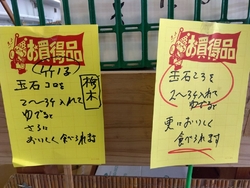 お買得品
(竹の子)
栃木
玉石コロを
2〜3ケ入れて
ゆでると
さらに
おいしく食べられます
お買得品
玉石ころを
2〜3ケ入れて
ゆでると
更においしく
食べられます